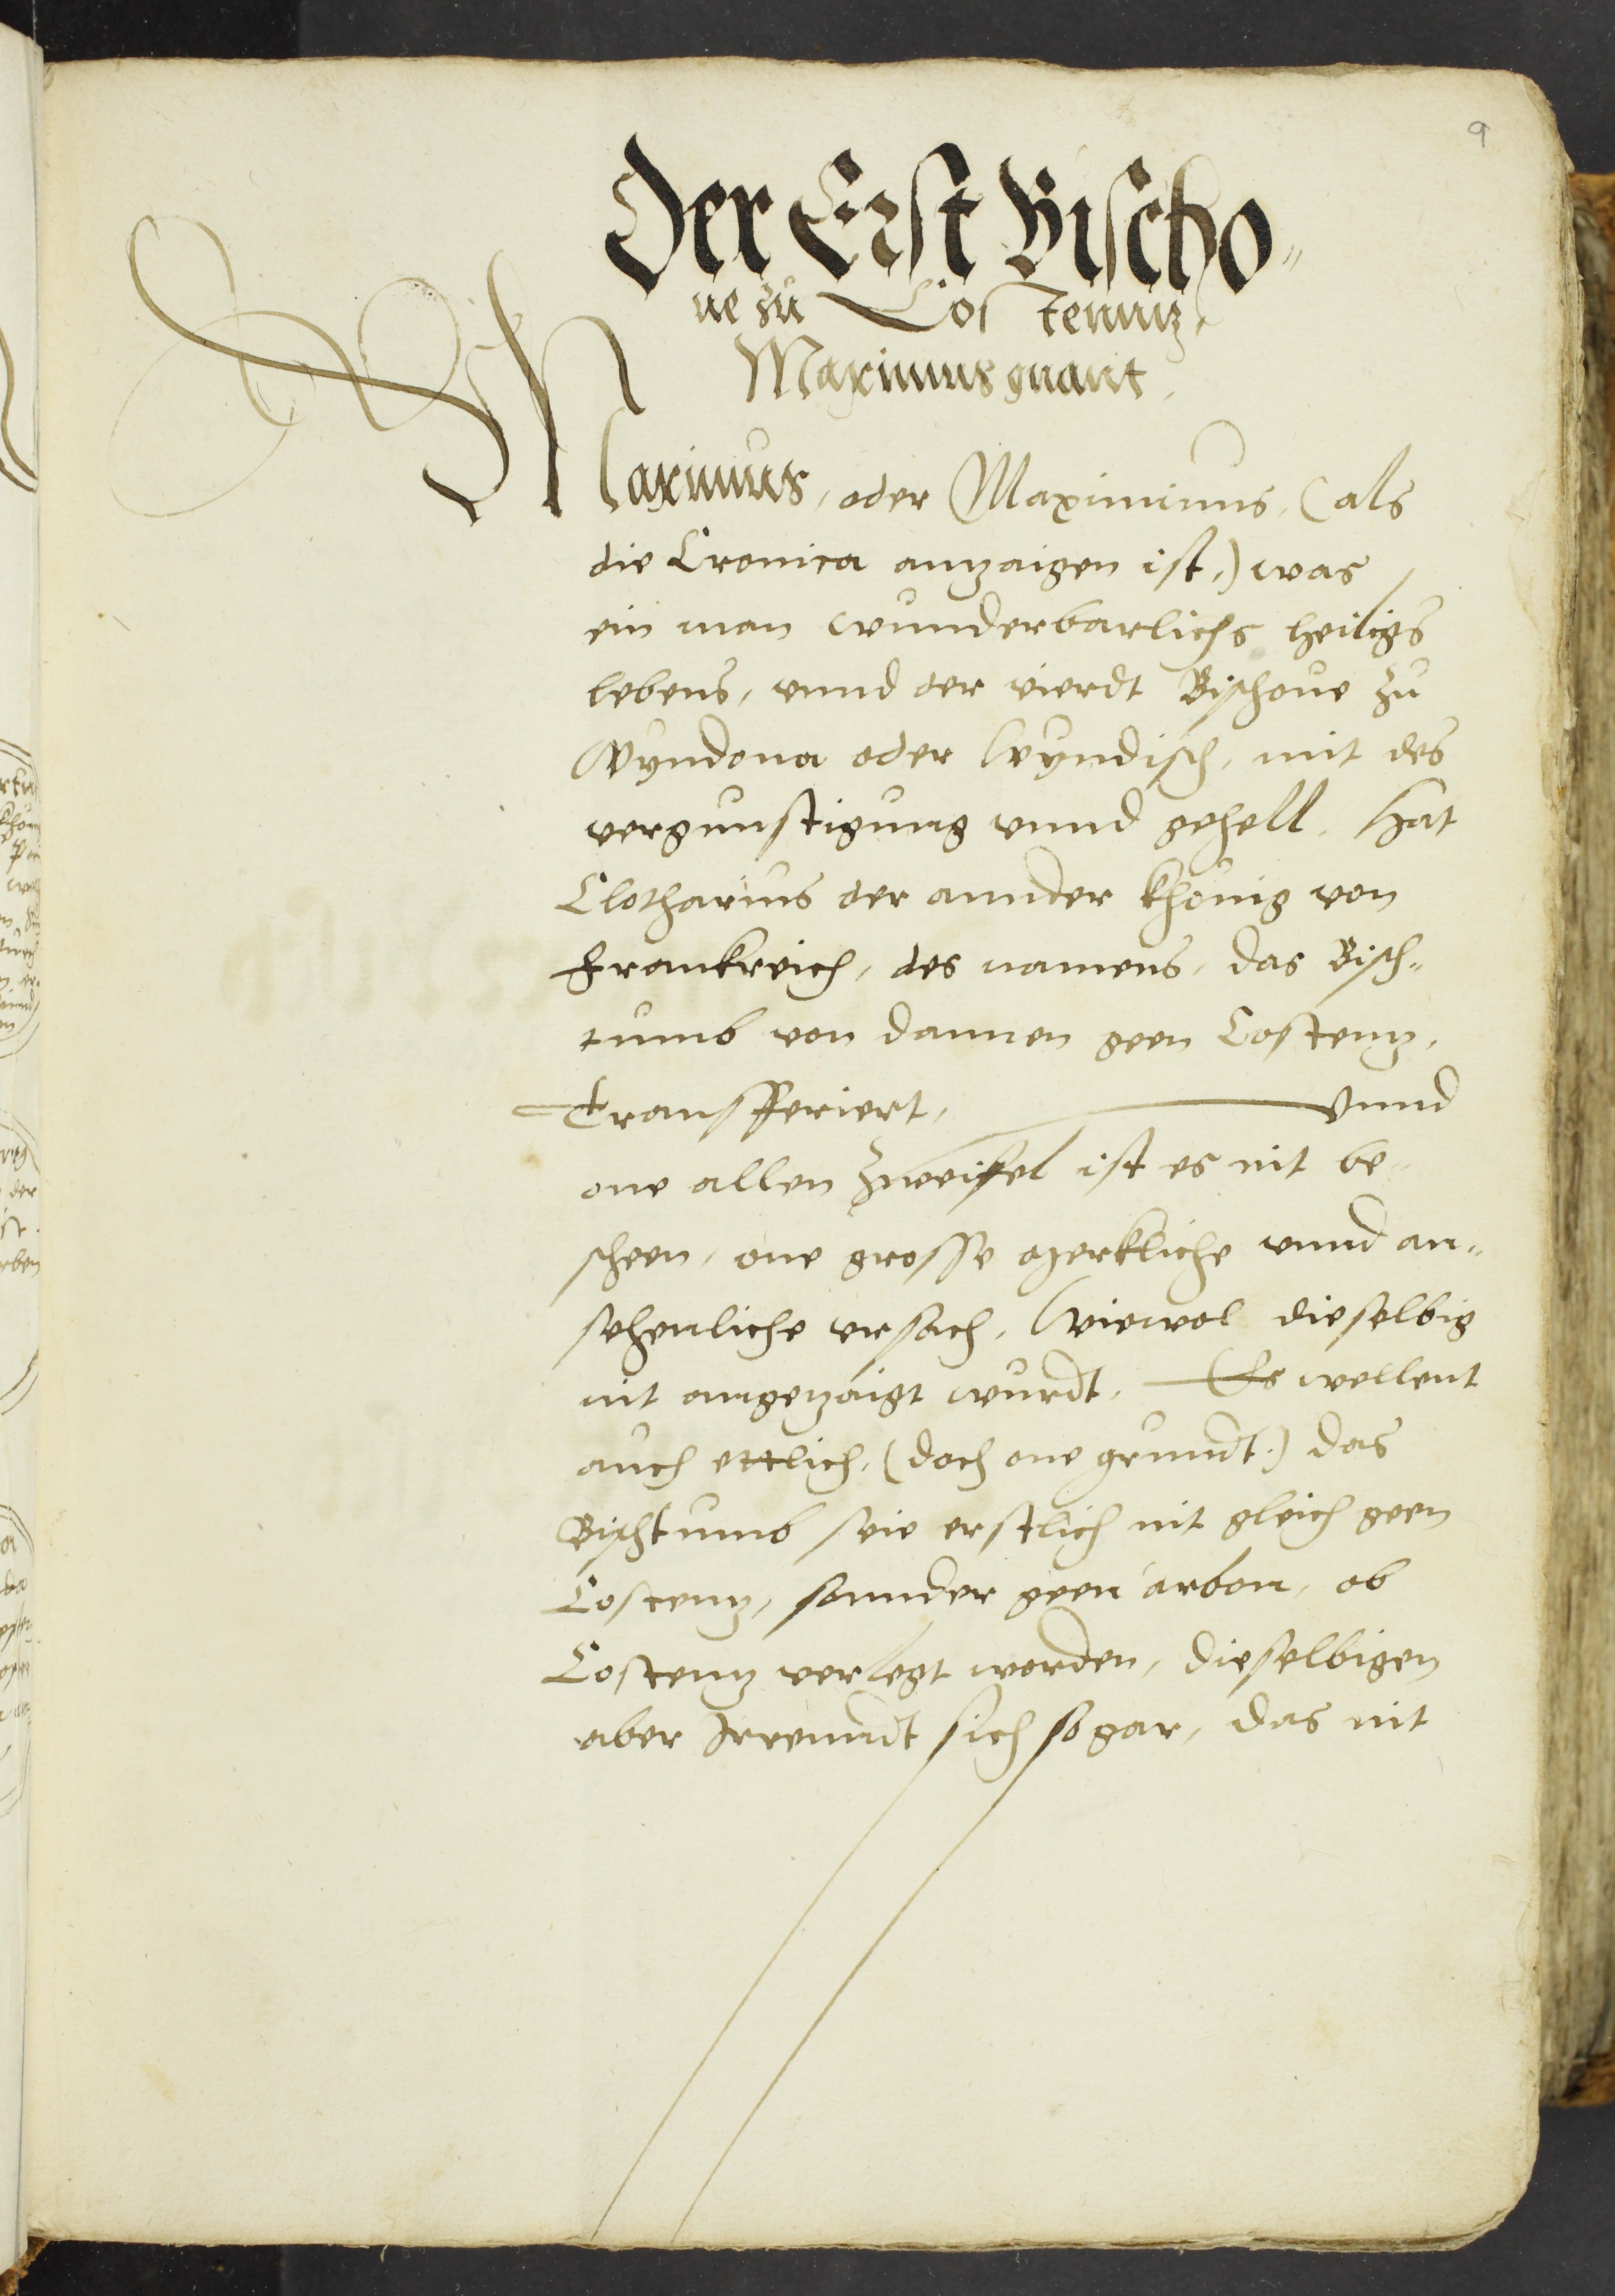 9
Der Erst Bischo„
ue zu Costenntz,
Maximus gnant,
Maximus, oder Maximinus, (als
die Cronica anzaigen ist,) was
ein man wunderbarlichs heiligs
lebens, vnnd der vierdt Bischoue zu
Vyndona oder Wyndisch, mit des
vergunstigung vnnd gehell, hat
Clotharius der annder Khönig von
Frankreich, des namens, das Bisch„
tumb von dannen geen Costentz,
Transfferiert, Vnnd
one allen Zweifel ist es nit be„
scheen, one grosse merkliche vnnd an„
sehenliche vrsach, Wiewol dieselbig
nit angezaigt wurdt, Es wellent
auch ettlich, (doch one grundt,) das
Bischtumb seie erstlich nit gleich geen
Costentz, sonnder geen arbon, ob
Costentz verlegt worden, dieselbigen
aber Irrenndt sich so gar, das nit